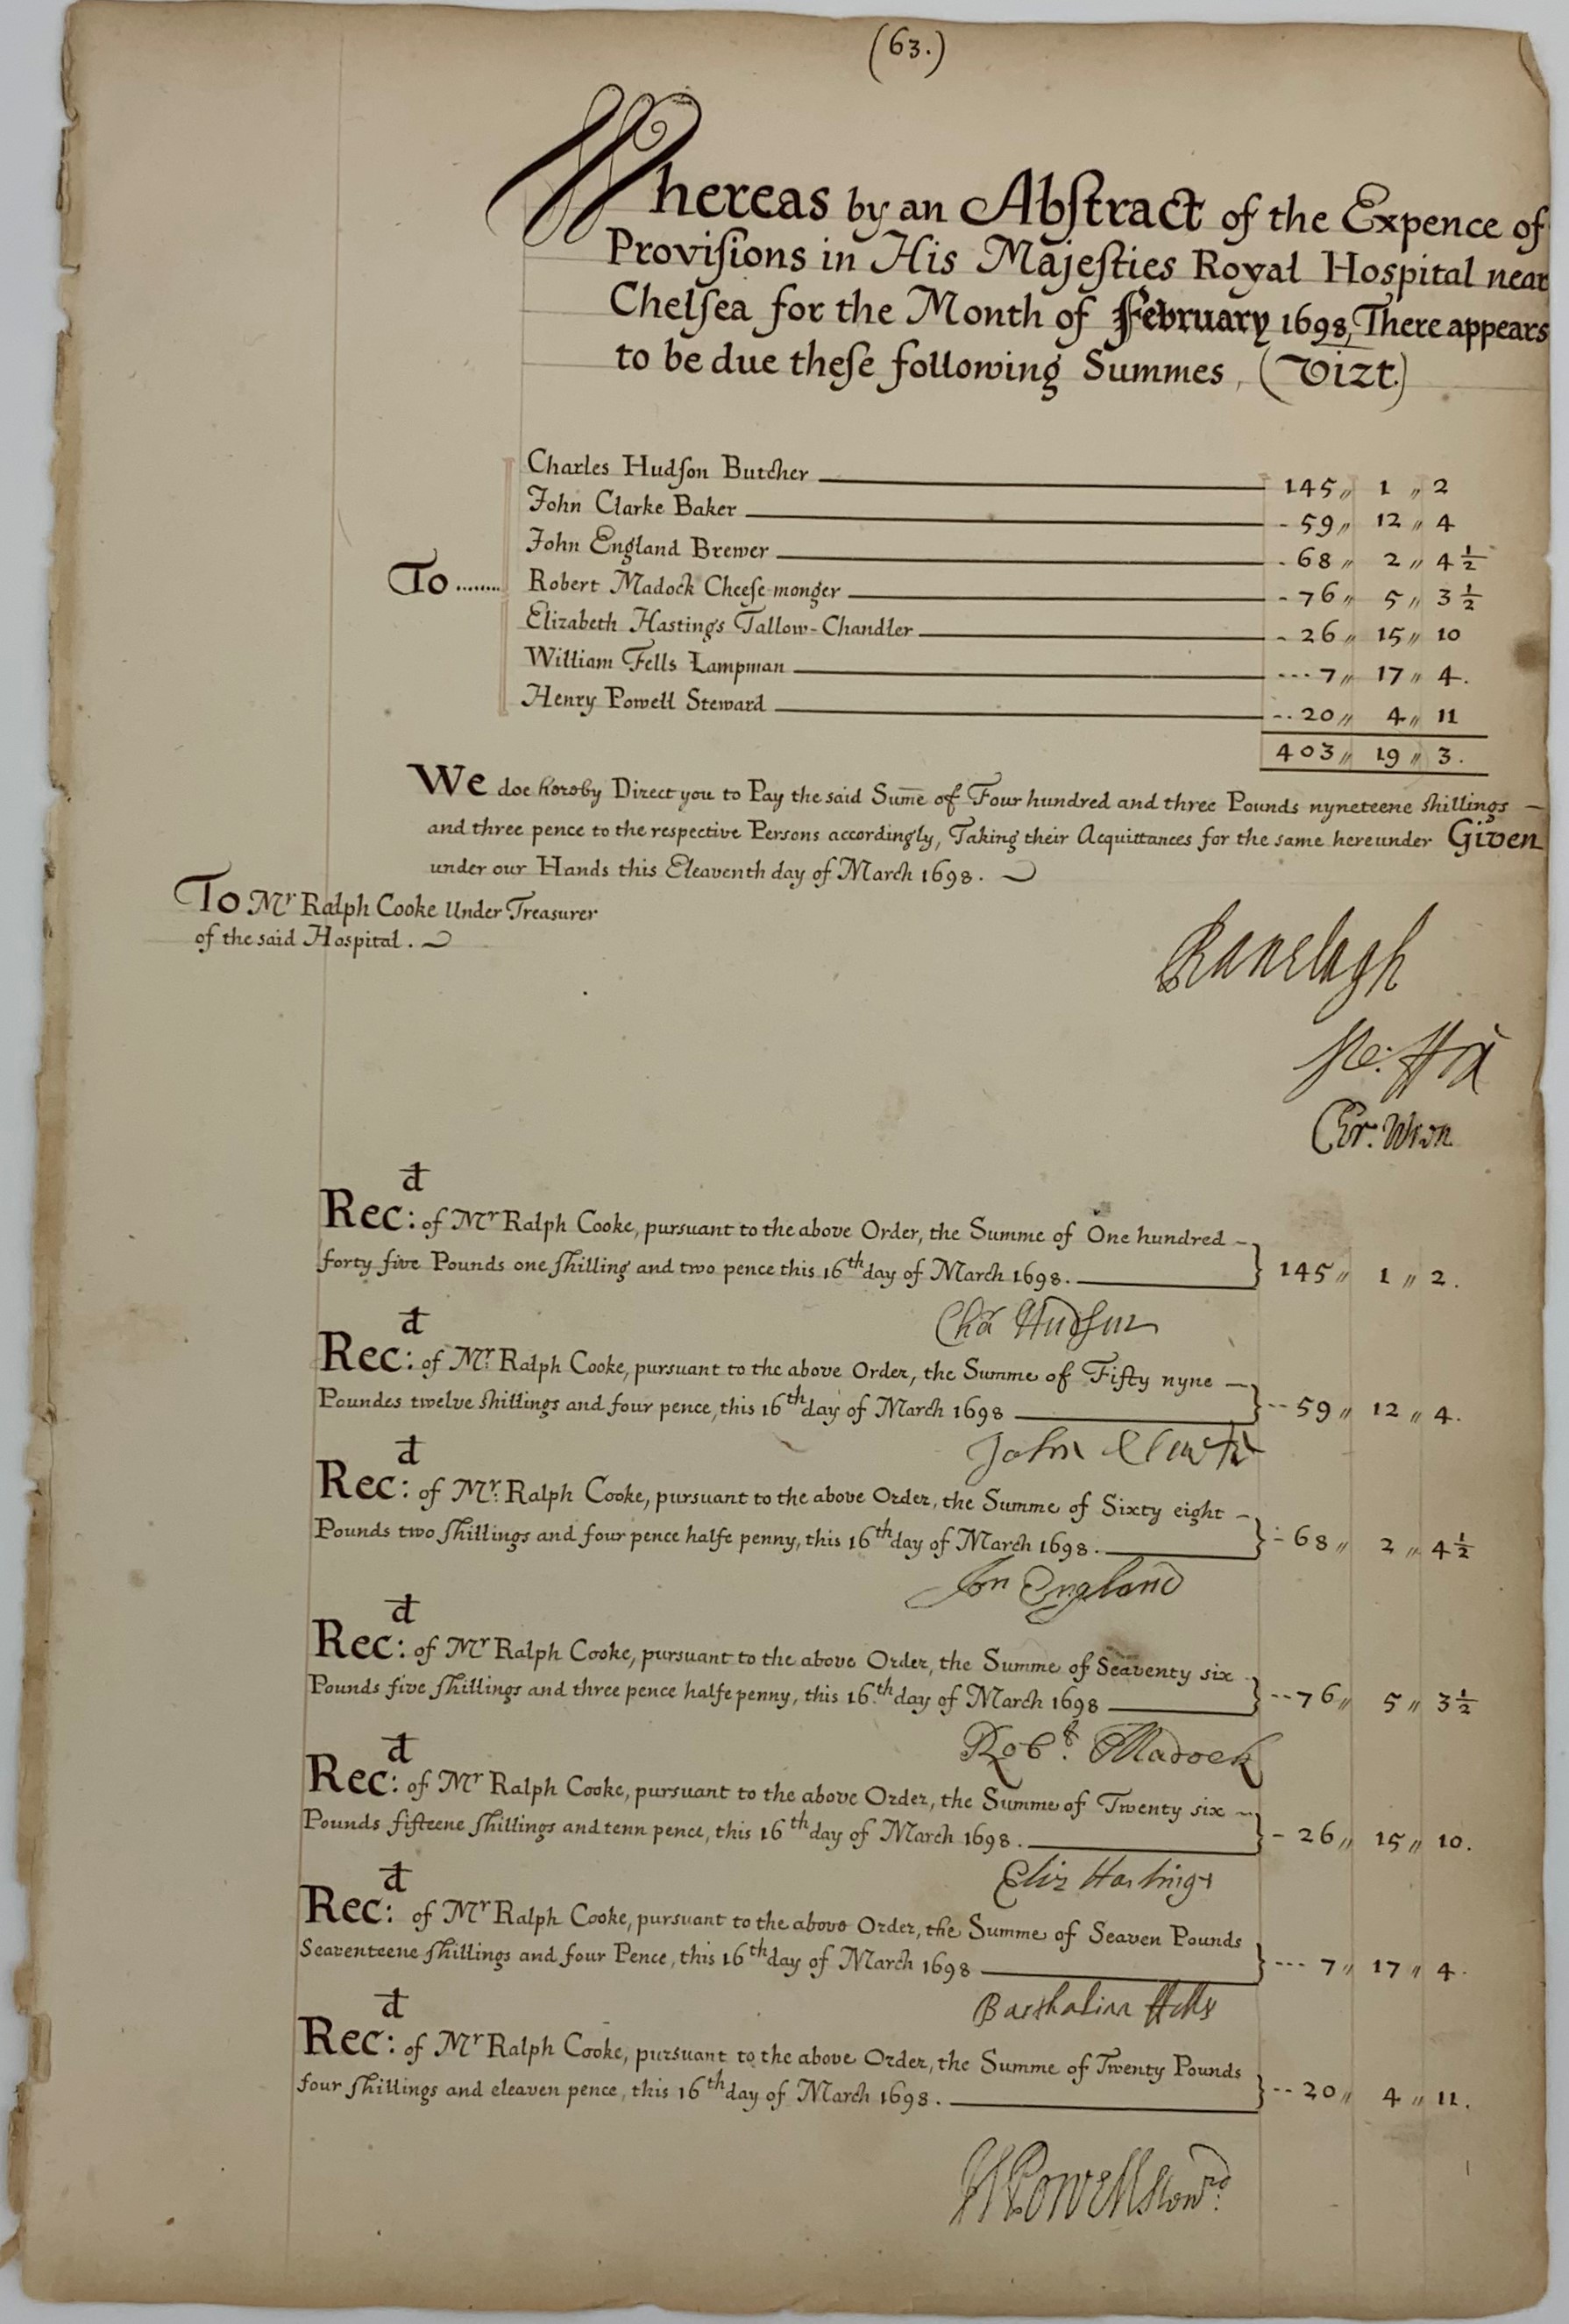 (63.)
Whereas by an Abſtract of the Expence of
Proviſions in His Majeſties Royal Hospital near
Chelſea for the Month of February 1698, There appears
to be due theſe following Summes, (Vizt.)
Charles Hudſon Butcher 145 〃 1 〃 2
John Clarke Baker - 59 〃 12 〃 4
John England Brewer - 68 〃 2 〃 4 ½
To ........ Robert Madock Cheeſe-monger - 76 〃 5 〃 3 ½
Elizabeth Hastings Tallow-Chandler - 26 〃 15 〃 10
William Fells Lampman --- 7 〃 17 〃 4.
Henry Powell Steward -- 20 〃 4 〃 11
403 〃 19 〃 3.
We doe hereby Direct you to Pay the said Sum̅e of Four hundred and three Pounds nyneteene shillings —
and three pence to the respective Persons accordingly, Taking their Acquittances for the same hereunder Given
under our Hands this Eleaventh day of March 1698.
To Mr Ralph Cooke Under Treasurer
of the said Hospital.
Ranelagh
Ste: Fox
Chr. Wren
Rec:d of Mr Ralph Cooke, pursuant to the above Order, the Summe of One hundred –
forty five Pounds one ſhilling and two pence this 16th day of March 1698. } 145 〃 1 〃 2.
Cha Hudſon
Rec:d of Mr. Ralph Cooke, pursuant to the above Order, the Summe of Fifty nyne —
Poundes twelve shillings and four pence, this 16th day of March 1698 } -- 59 〃 12 〃 4.
John Clark
Rec:d of Mr: Ralph Cooke, pursuant to the above Order, the Summe of Sixty eight –
Pounds two ſhillings and four pence halfe penny, this 16th day of March 1698. } - 68 〃 2 〃 4 ½
Jon England
Rec:d of Mr Ralph Cooke, pursuant to the above Order, the Summe of Seaventy six
Pounds five ſhillings and three pence halfe penny, this 16.th day of March 1698 } -- 76 〃 5 〃 3 ½
Robt. Madock
Rec:d of Mr Ralph Cooke, pursuant to the above Order, the Summe of Twenty six –
Pounds fifteene ſhillings and tenn pence, this 16th day of March 1698. } - 26 〃 15 〃 10.
Eliz Hastings
Rec:d of Mr Ralph Cooke, pursuant to the above Order, the Summe of Seaven Pounds
Seaventeene ſhillings and four Pence, this 16th day of March 1698 } --- 7 〃 17 〃 4.
Rec:d of Mr Ralph Cooke, pursuant to the above Order, the Summe of Twenty Pounds
four ſhillings and eleaven pence, this 16th day of March 1698. } -- 20 〃 4 〃 11.
H Powell Stewrd.